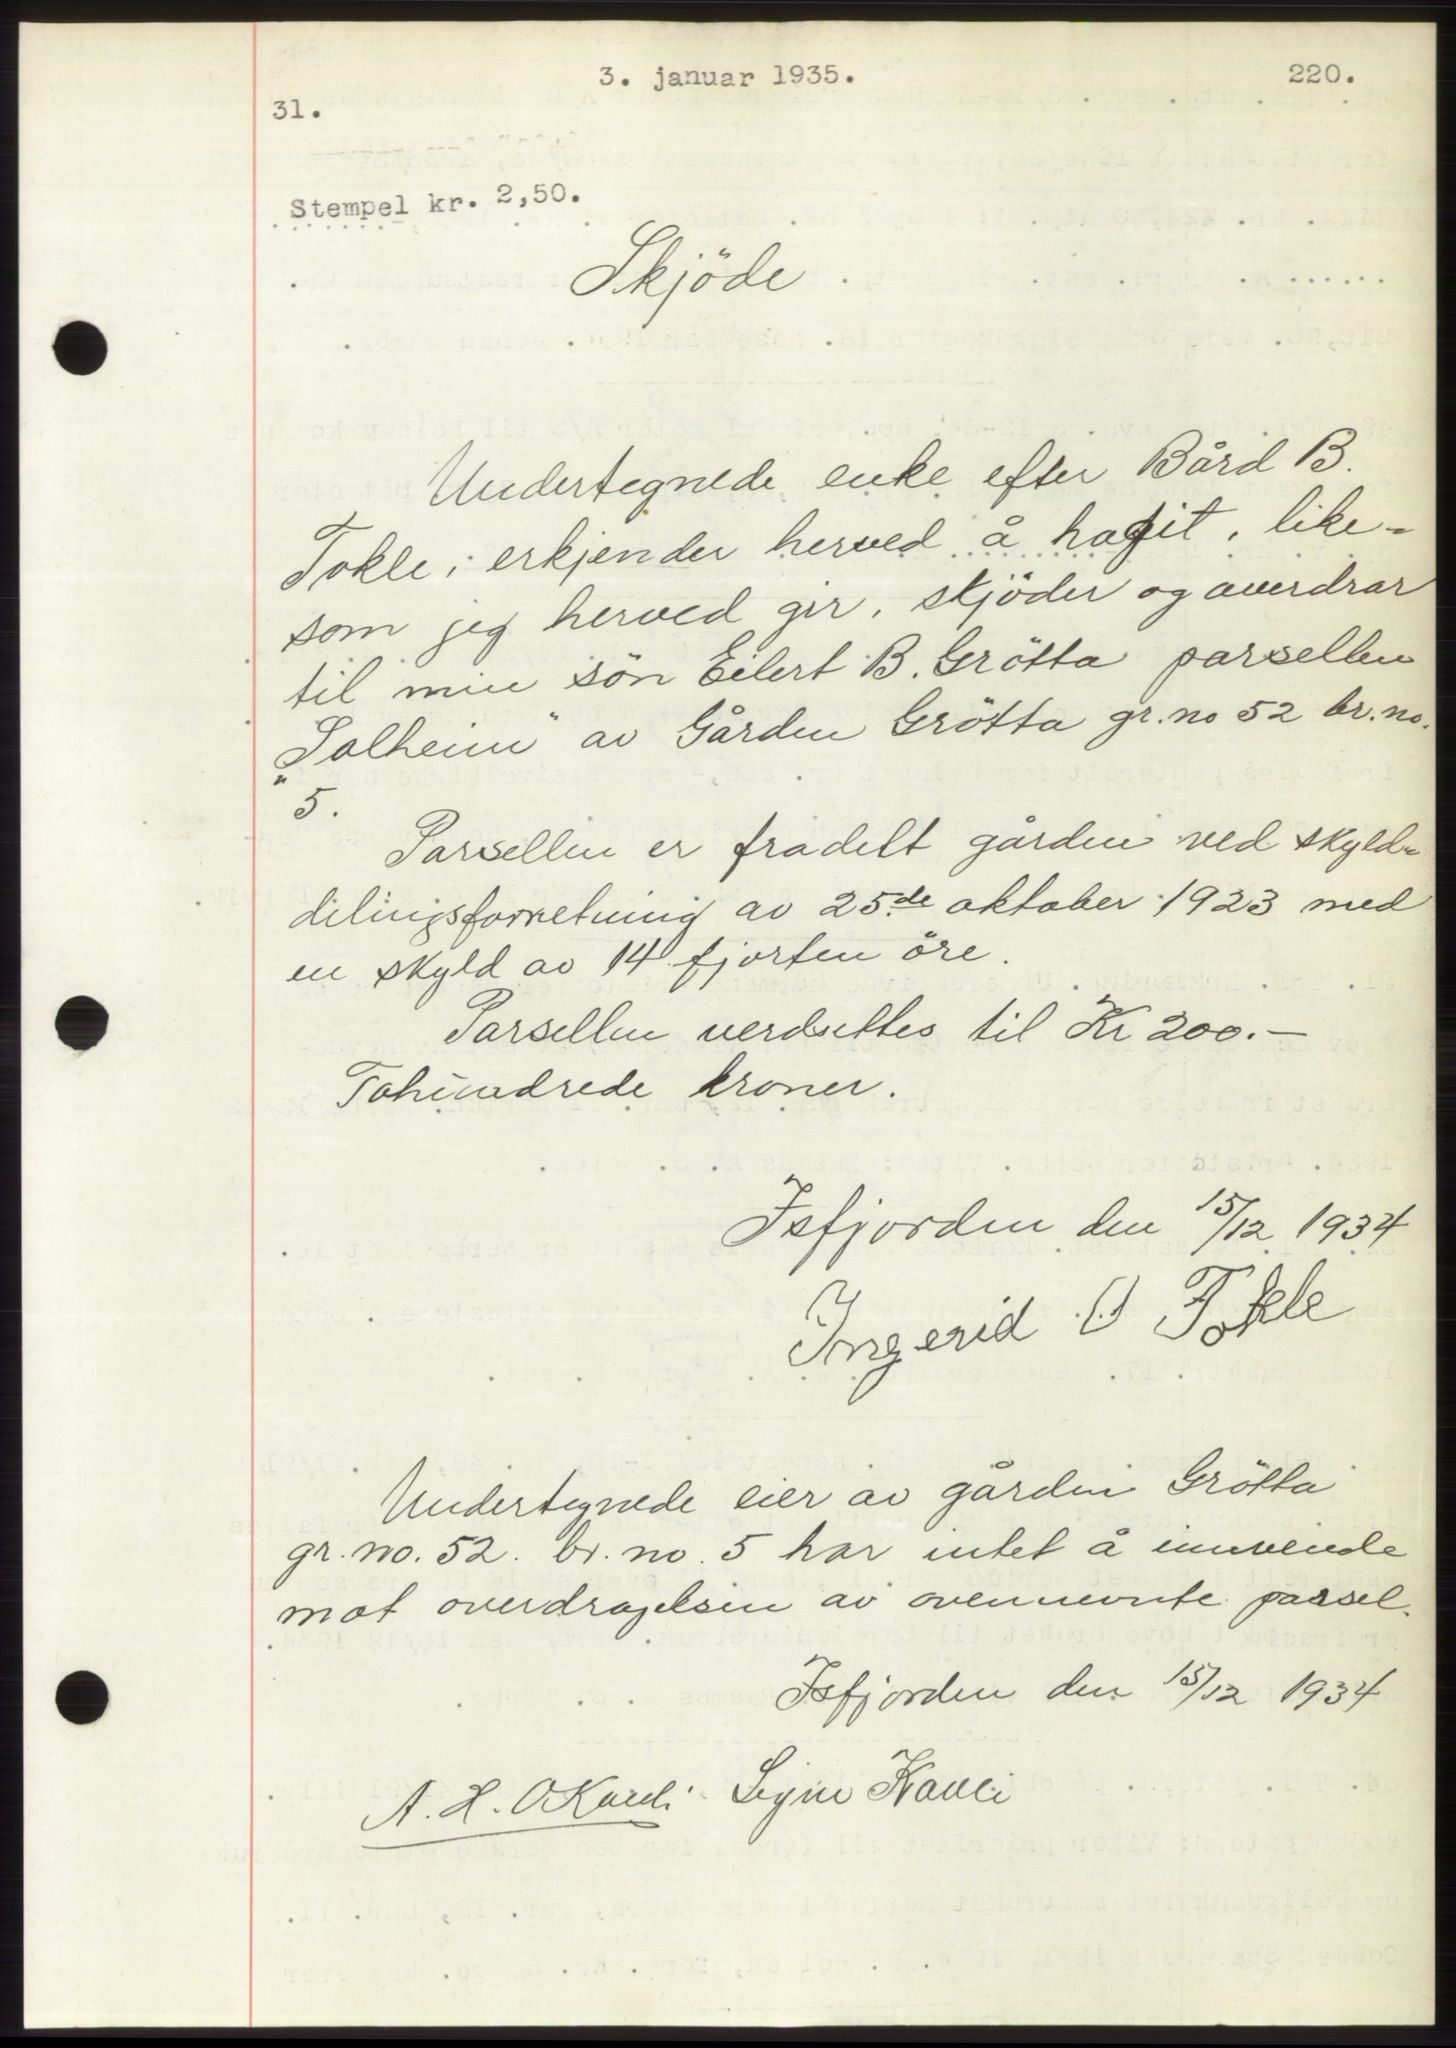 3. januar 1935.
220.
31.
Stempel kr. 2,50.
Skjöde
Undertegnede enke efter Bård B.
Tokle; erkjender herved å hagit, like-
som jeg herved gir, skjöder og averdrar
til min sön Eilert B. Grötta parsellen
"Solheim" av Gården Grötta gr. no 52 br. no.
5.
Parsellen er fradelt gården ved skyld-
delingsforretning av 25de oktober 1923 med
en skyld av 14 fjorten öre.
Parsellen verdsettes til Kr 200.-
Tohundrede kroner.
Isfjorden den 15/12 1934
Ingerid O Tokle
Undertegnede eier av gården Grötta
gr. no. 52. br. no. 5 har intet å innvende
mot overdragelsen av ovennevnte parsel.
Isfjorden den 15/12 1934
A. L. O Kavli Signe Kavli